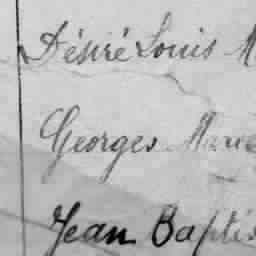 Désiré Louis M
Georges Marie
Jean Baptis